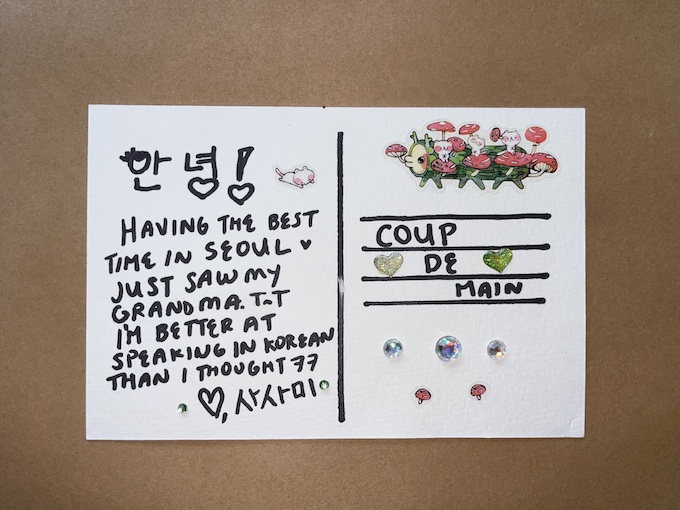 안녕!
HAVING THE BEST
TIME IN SEOUL ♥
JUST SAW MY
GRANDMA. T~T
I'M BETTER AT
SPEAKING IN KOREAN
THAN I THOUGHT ㅋㅋ
♡, 사사미
COUP
DE
MAIN